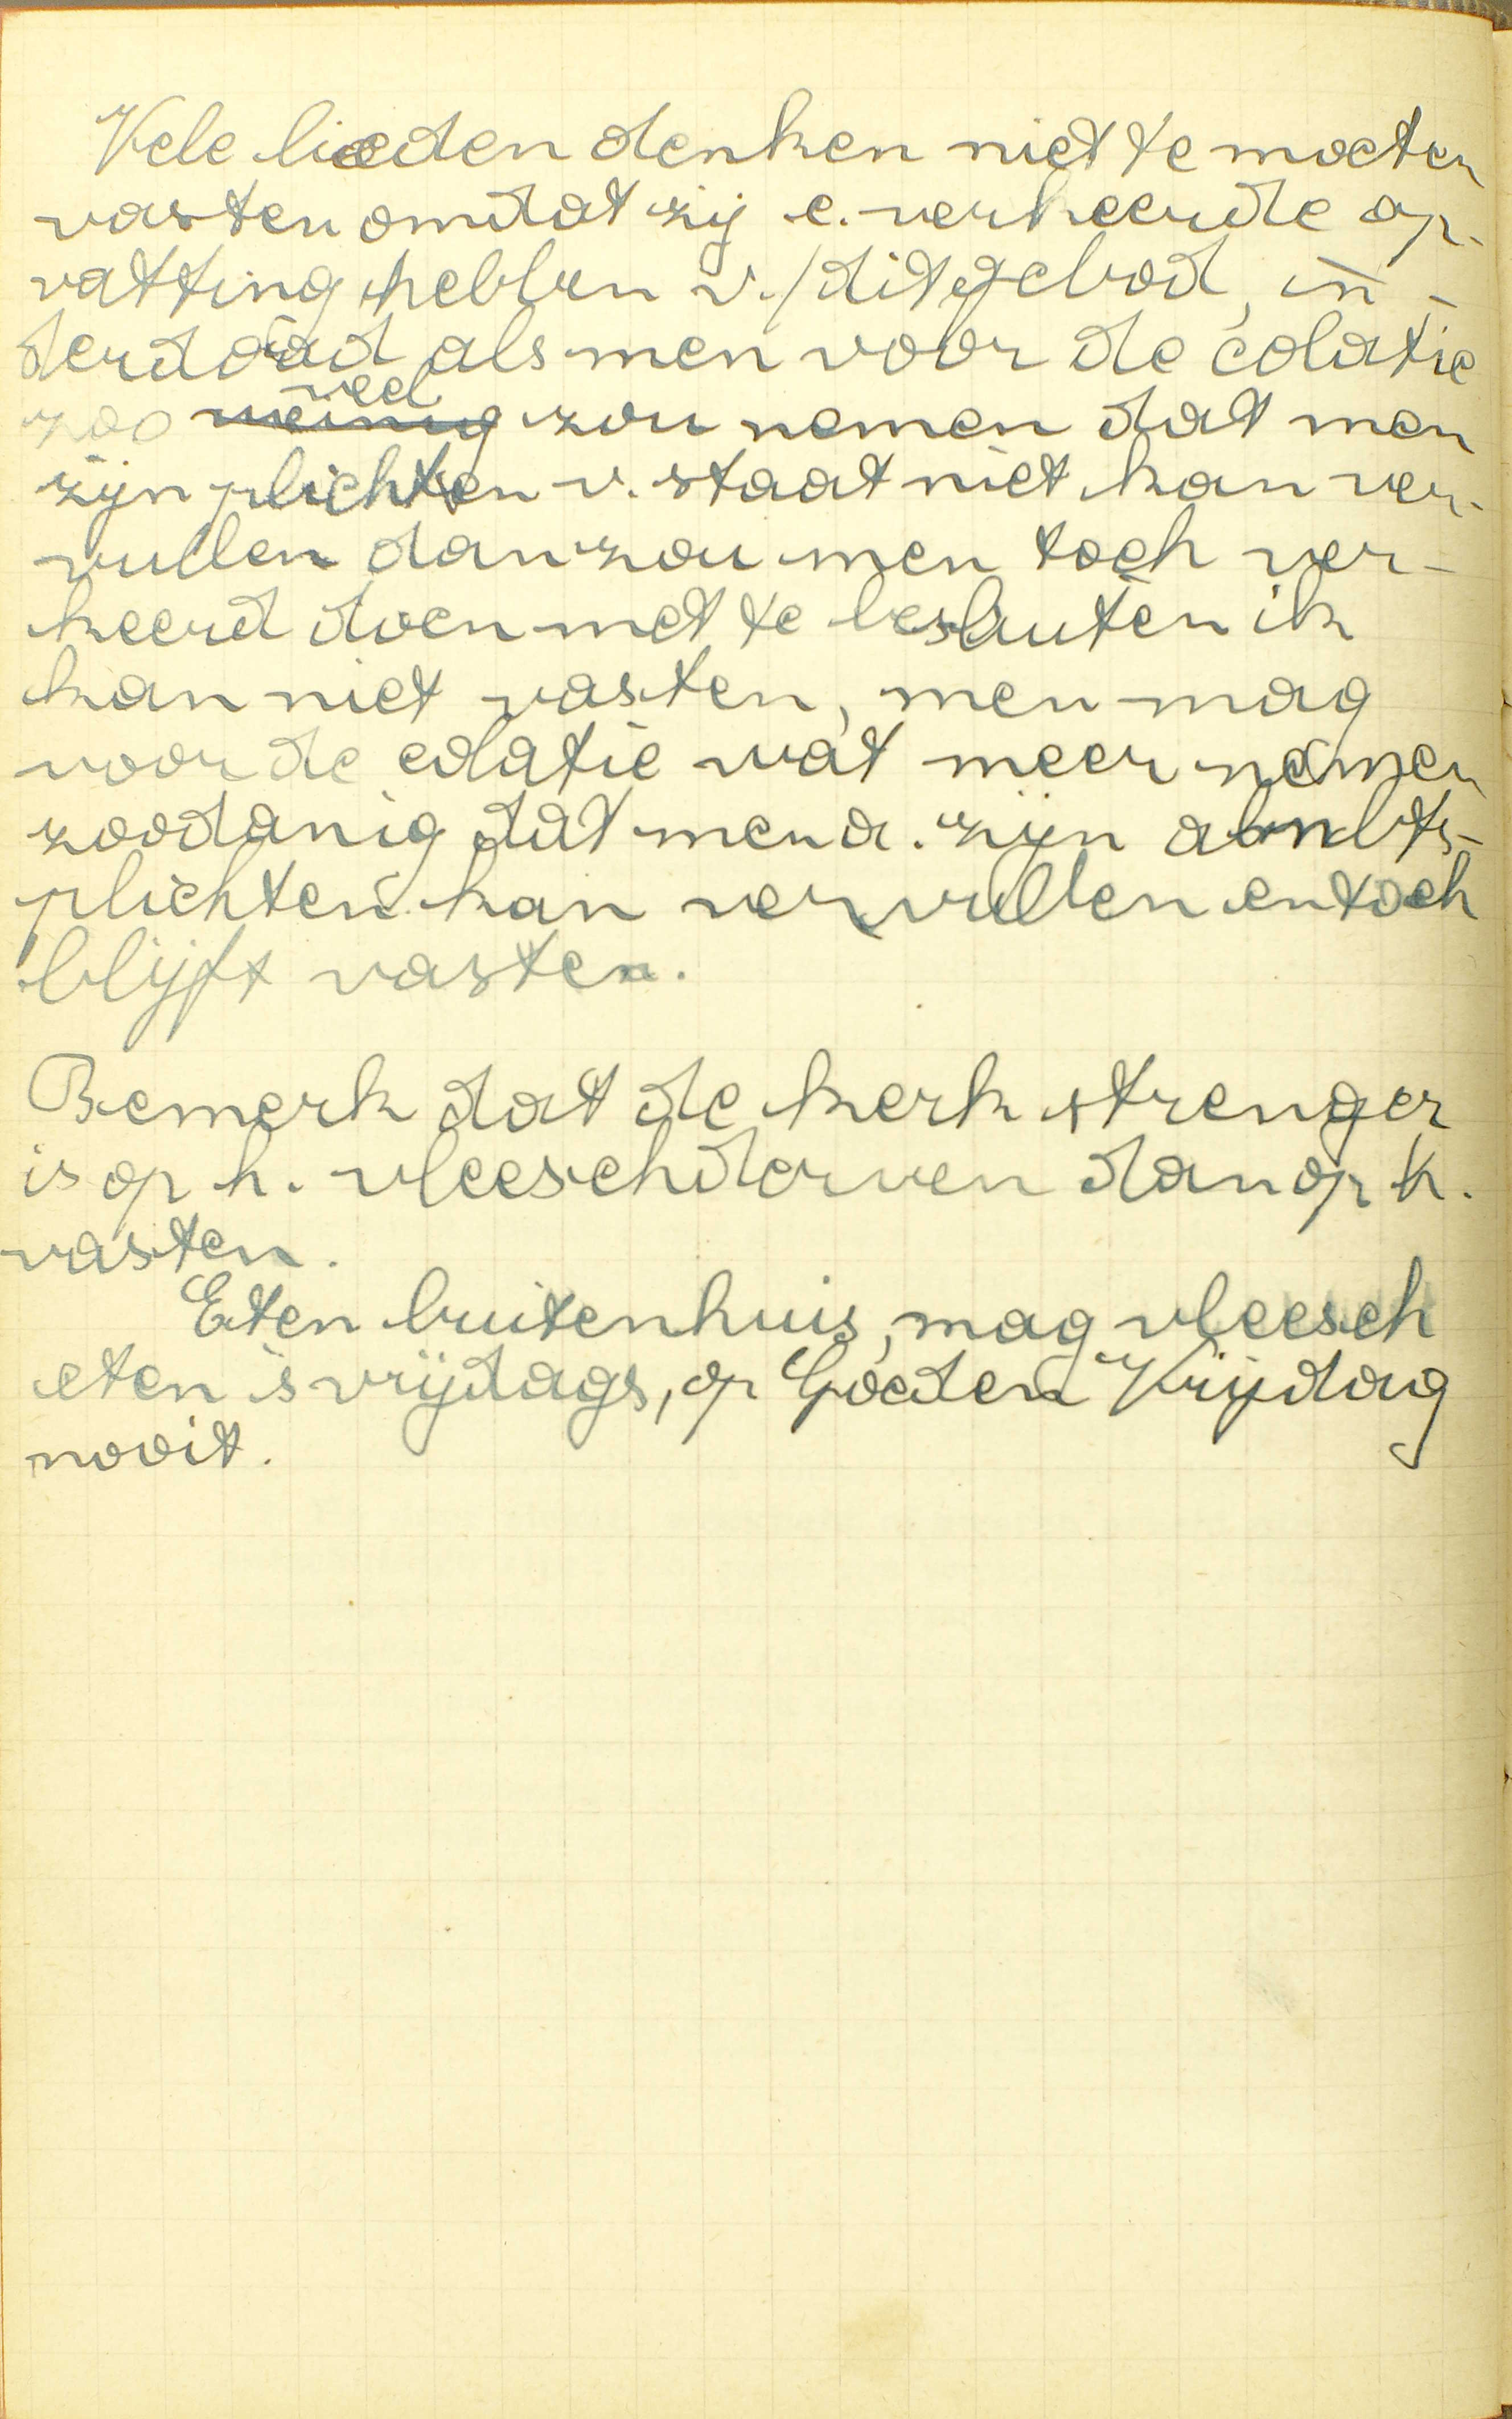 Vele lieden denken niet te moeten
vasten omdat zij e. verkeerde op-
vatting hebben v./dit gebod, in-
derdaad als men voor de colatie
zoo weinig veel zou nemen dat men
zijn plichten v. staat niet kan ver-
vullen dan zou men toch ver-
keerd doen met te besluiten ik
kan niet vasten, men mag
voor de colatie wat meer nemen
zoodanig dat men a. zijn ambts-
plichten kan vervullen en toch
blijft vasten.
Bemerk dat de kerk strenger
is op h. vleeschderven dan op h.
vasten.
Eten buitenhuis, mag vleesch
eten 's vrijdags, op Goeden Vrijdag
nooit.